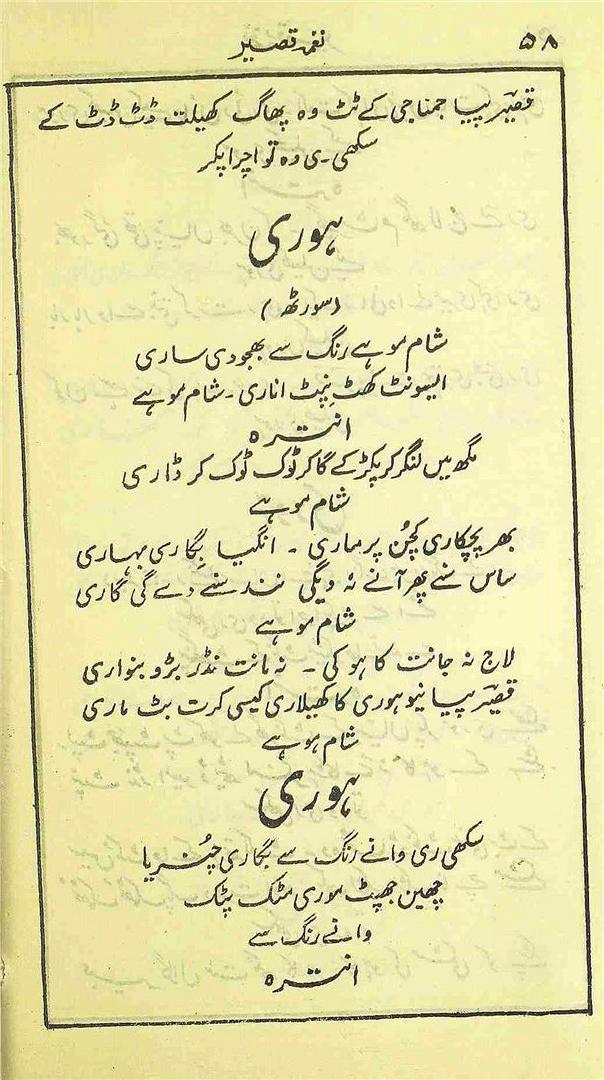 ۵۸ نغمۂ قصیر
قصیر پیا جمنا جی کے تٹ وہ پھاگ کھیلت ڈٹ ڈٹ کے
سکھی۔ ی وہ تو اچرا پکر
ہوری
(سورٹھ)
شام موہے رنگ سے بھجودی ساری
ایسونٹ کھٹ نپٹ اناری۔ شام موہے
انترہ
مگھ میں لنگر کر پکڑ کے گاگر ٹوک ٹوک کر ڈاری
شام موہے
بھر پچکاری کچن پر ماری ۔ انگیا بگاری بہاری
ساس ننے پھر آنے نہ دیگی نند سنے دے گی گاری
شام موہے
لاج نہ جانت کا ہو کی ۔ نہ مانت نڈر بڑو بنواری
قصیر پیا نیو ہوری کا کھیلاری کیسی کرت بٹ ماری
شام موہے
ہوری
سکھی ری وانے رنگ سے بگاری چنریا
چھین جھپٹ موری مٹک پٹک
وانے رنگ سے
انترہ